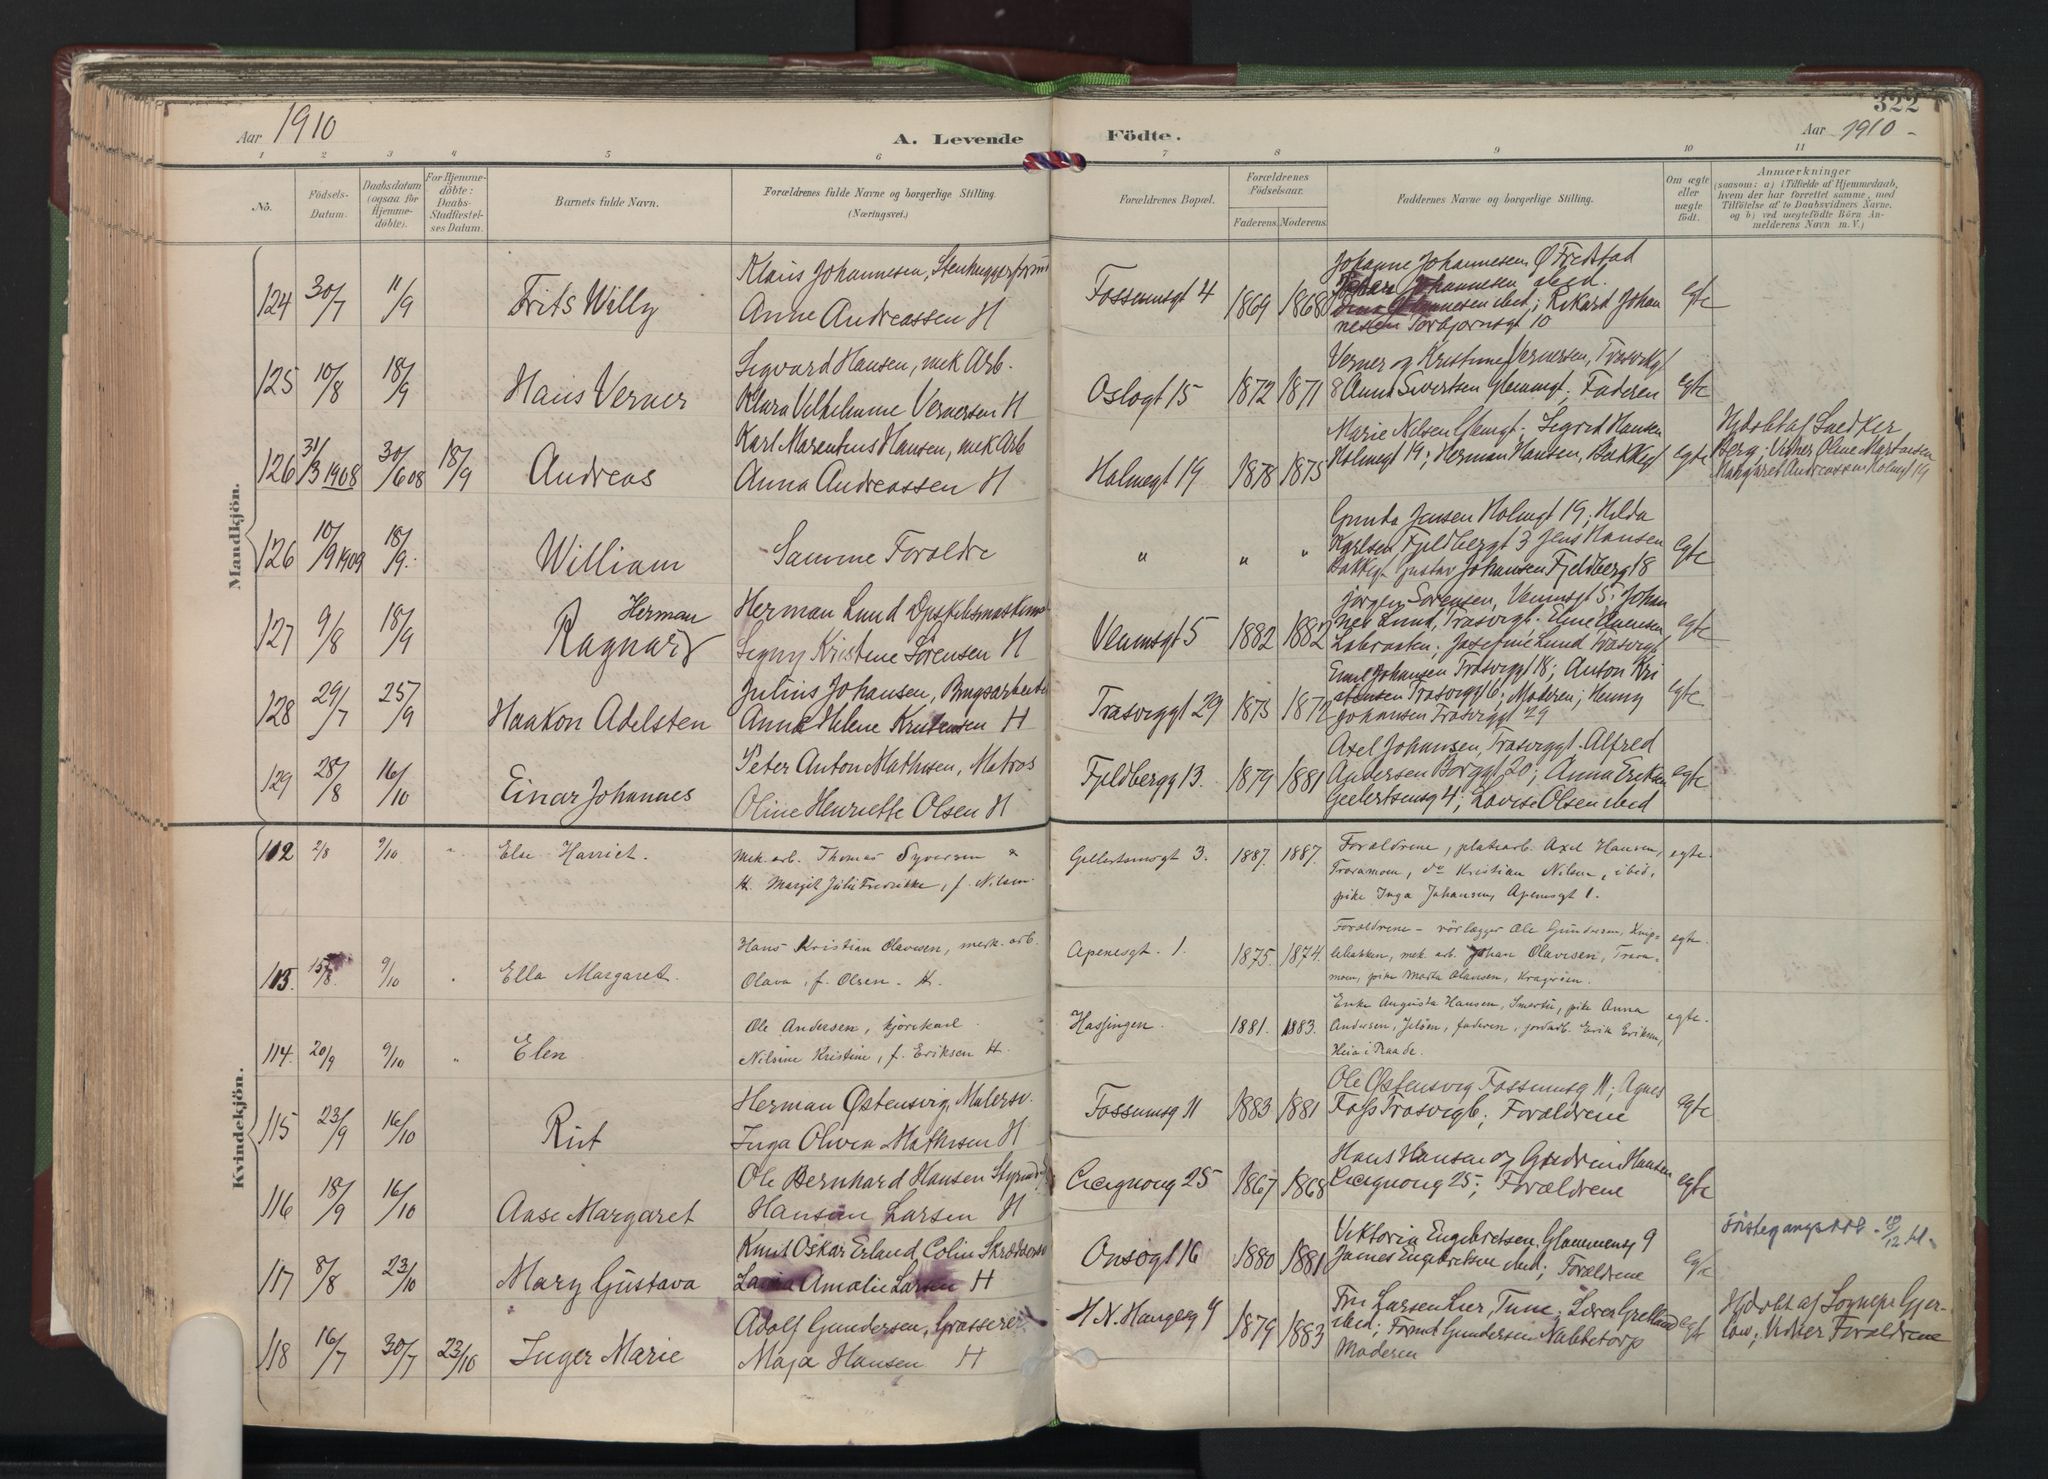 322
Aar 1910
A. Levende Födte.
Aar 1910 -
1 2 3 4 5 6 7 8 9 10 11
No.
Födsels-
Datum.
Daabsdatum
(ogsaa for
Hjemme-
döbte).
For Hjemme-
döbte:
Daabs-
Stadfæstel-
ses Datum.
Barnets fulde Navn.
Forældrenes fulde Navne og borgerlige Stilling.
(Næringsvei.)
Forældrenes Bopæl.
Forældrenes
Födselsaar.
Faderens. Moderens.
Faddernes Navne og borgerlige Stilling.
Om ægte
eller
uægte
født.
Anmærkninger
(saasom: a) i Tilfælde af Hjemmedaab,
hvem der har forrettet samme, med
Tilföielse af to Daabsvidners Navne,
og b) ved uægtefödte Börn An-
melderens Navn m. V.)
Mandkjön.
124 30/7 11/9 Frits Willy
Klaus Johannesen, Stenhuggerform
Anne Andreassen H
Fossumsgt 4 1869 1868
Johanne Johannesen Ø Fredstad
Johannesen ibed.
Johannesen ibed; Rikard Johan
nesen Torbjornsgt 10
egte
125 10/8 18/9 Hans Verner
Sigvard Hansen, mek Arb.
Klara Vilhelmine Vernersen H
Oslogt 15 1872 1871
Verner og Kristine Vernersen, Trosvikgt
8 Anna Sivertsen Glemmgt; Faderen
egte
126 31/3 1908 30/6 08 18/9 Andreas
Karl Marentius Hansen, mek Arb
Anna Andreassen H
Holmegt 19 1878 1875
Marie Nilsen Glemgt; Sigrid Hansen
Holmegt 19; Herman Hansen, Bakkegt
egte
Hjdobt af Snedker
Berg; Vidner Oline Martinsen
Margaret Andreassen Holmegt 19
126 10/9 1909 18/9. William
Samme Foraldre
" " "
Gunda Jensen Holmgt 19; Hilda
Karlsen Fjeldbergt 3 Jens Hansen
Bakkegt Gustav Johansen Fjeldberg 18
egte
127 9/8 18/9 Ragnar Herman
Herman Lund
Signy Kristine Sørensen H
Veumsgt 5 1882 1882
Jörgen Sorensen, Veumsgt 5; Johan
nes Lund, Trosvigt. Hansen
Labraaten; Josefine Lund Trosvigt
egte
128 29/7 25/9 Haakon Adelsten
Julius Johansen, Brugsarbeider
Anna Helene Kristensen H
Trosviggt 29 1873 1872
Emil Johansen Trosviggt 18; Anton Kri
stensen Trosviggt 6; Moderen; Henny
Johansen Trosviggt 29
egte
129 28/8 16/10 Einar Johannes
Peter Anton Mathisen, Matros
Oline Henriette Olsen H
Fjeldbergg 13. 1879 1881
Axel Johansen, Trosviggt. Alfred
Andersen Borggt 20; Anna Eriksen
Geelertsensg 4; Lovise Olsen ibed
egte
Kvindekjön.
112 2/8 9/10 " Else Harriet.
Mek. arb. Thomas Syversen &
H. Margit Julie Fredrikke, f. Nilsen.
Gellertsensgt 3. 1887. 1887.
Forældrene, platearb. Axel Hansen,
Traramoen, do Kristian Nilsen, ibid,
pike Inga Johansen, Apenesgt 1.
egte.
113. 15/8. 9/10 " Ella Margaret.
Hans Kristian Olavesen, mek. arb.
Olava, f. Olsen. H.
Apenesgt. 1. 1875. 1874.
Forældrene - rörlægger Ole Gundersen, Knip-
lebakken, mek. arb. Johan Olavesen, Trara-
moen, pike Marta Olavesen, Kragerön.
egte.
114. 20/9 9/10 " Elen
Ole Andersen, kjörekarl.
Nilsine Kristine, f. Eriksen H.
Hassingen. 1881. 1883.
Enke Augusta Hansen, Smertu, pike Anna
Andersen, Jelöen, faderen, jordarb. Erik Eriksen,
Heia i Raade.
egte.
115 23/9 16/10 Rut
Herman Østensvig, Malersv.
Inga Olivia Mathisen H
Fossumsg 11 1883 1881
Ole Østensvig Fossumsg 11; Agnes
Foss Trosvigb; Forældrene
egte
116 18/9 16/10 Aase Margaret
Ole Bernhard Hansen Styrmd
Hansine Larsen H
25 1867 1868
Hans Hansen og Gudrun Hansen
25; Forældrene
egte
117 8/8 23/10 Mary Gustava
Knut Oskar Erland Colin Skræddersv
Lavina Amalie Larsen H
Onsogt 16 1880 1881
Viktoria Engebretsen, Glommensg 9
James Engebretsen ibed; Forældrene
egte
Förstegangs att. 18/12 41.
118 16/7 30/7 23/10 Inger Marie
Adolf Gundersen, Grosserer
Maja Hansen H
H. N. Haugesg 4 1879 1883
Fru Larsen Lier, Tune; Lærer Grelland
ibed; Gundersen Nabbetorp
Moderen
egte
Hjdobt af Sognepr Gjer-
low; Vidner Forældrene